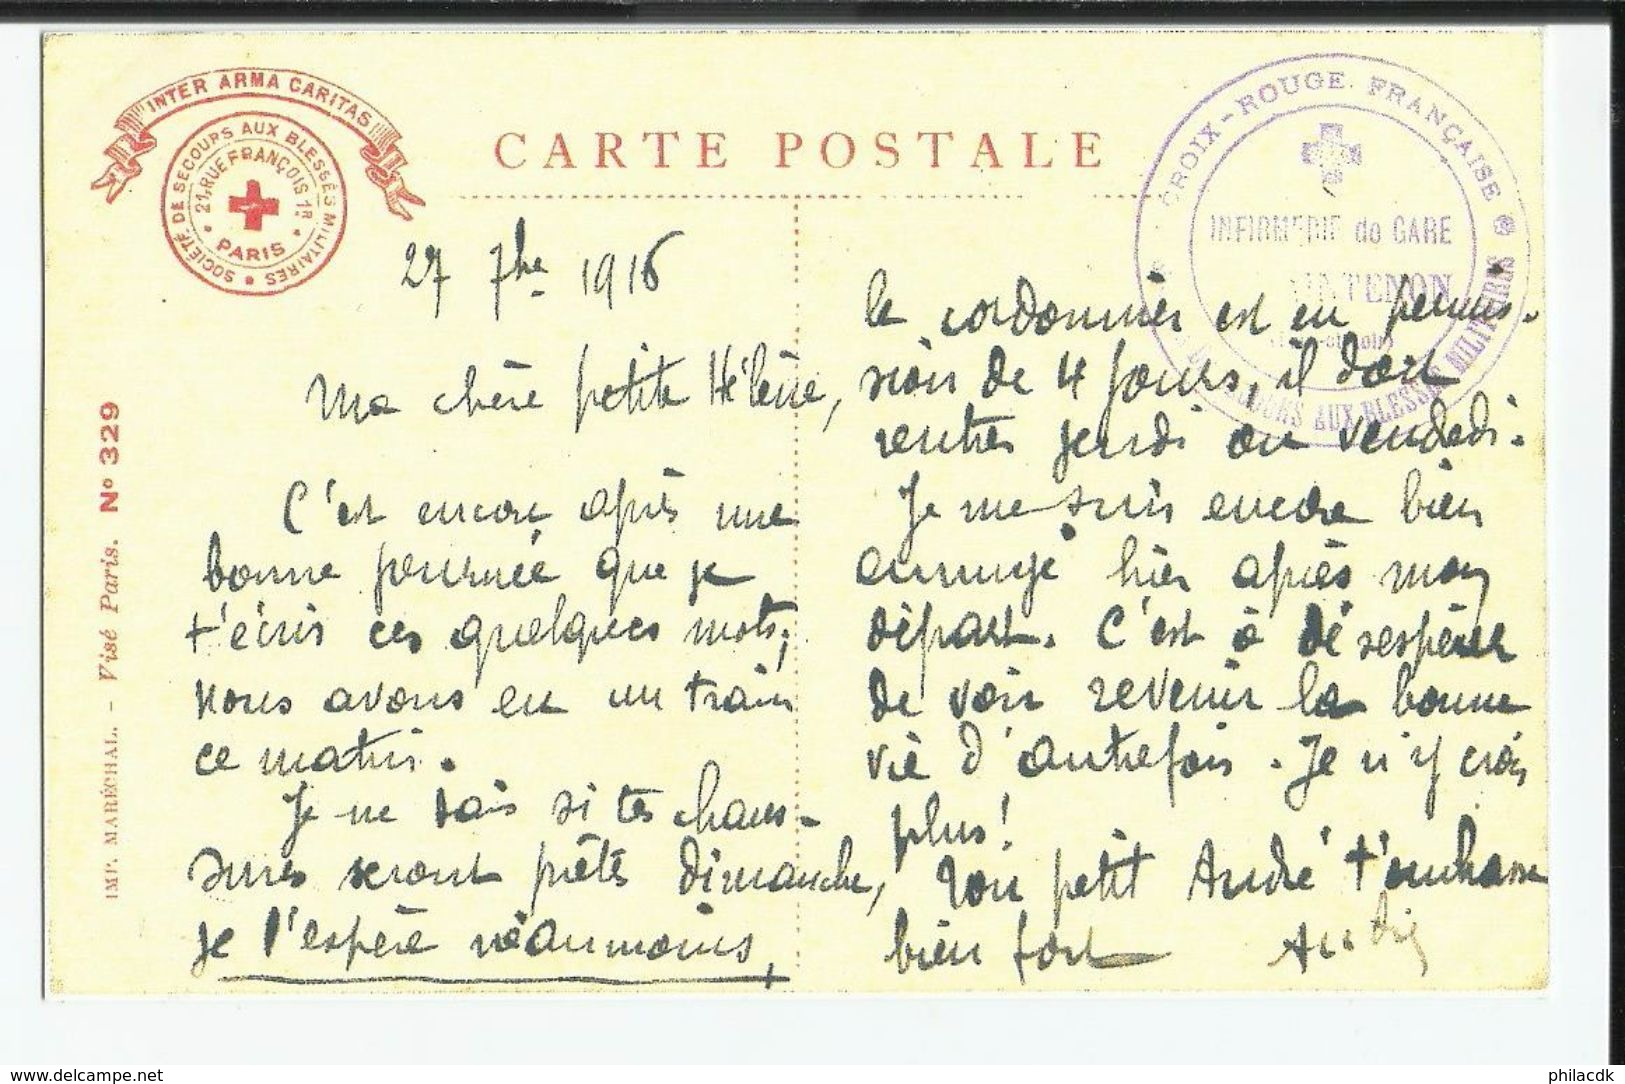 INTER ARMA CARITAS
SOCIÉTÉ DE SECOURS AUX BLESSÉS MILITAIRES
21, RUE FRANÇOIS 1R
PARIS
CARTE POSTALE
CROIX-ROUGE FRANÇAISE
SECOURS AUX BLESSÉS MILITAIRES
INFIRMERIE de GARE
IMP. MARÉCHAL. - Visé Paris. No 329
27 7bre 1916
Ma chère petite Hélène,
C'est encore après une
bonne journée que je
t'écris ces quelques mots;
nous avons eu un train
ce matin.
Je ne sais si tes chaus-
sures seront prêtes dimanche,
je l'espère néanmoins,
le cordonnier est en permis-
sion de 4 jours, il doit
rentrer jeudi ou vendredi.
Je me suis encore bien
ennuyé hier après mon
départ. C'est à désespérer
de voir revenir la bonne
vie d'autrefois. Je n'y crois
plus!
Ton petit André t'embrasse
bien fort
André
philacdk